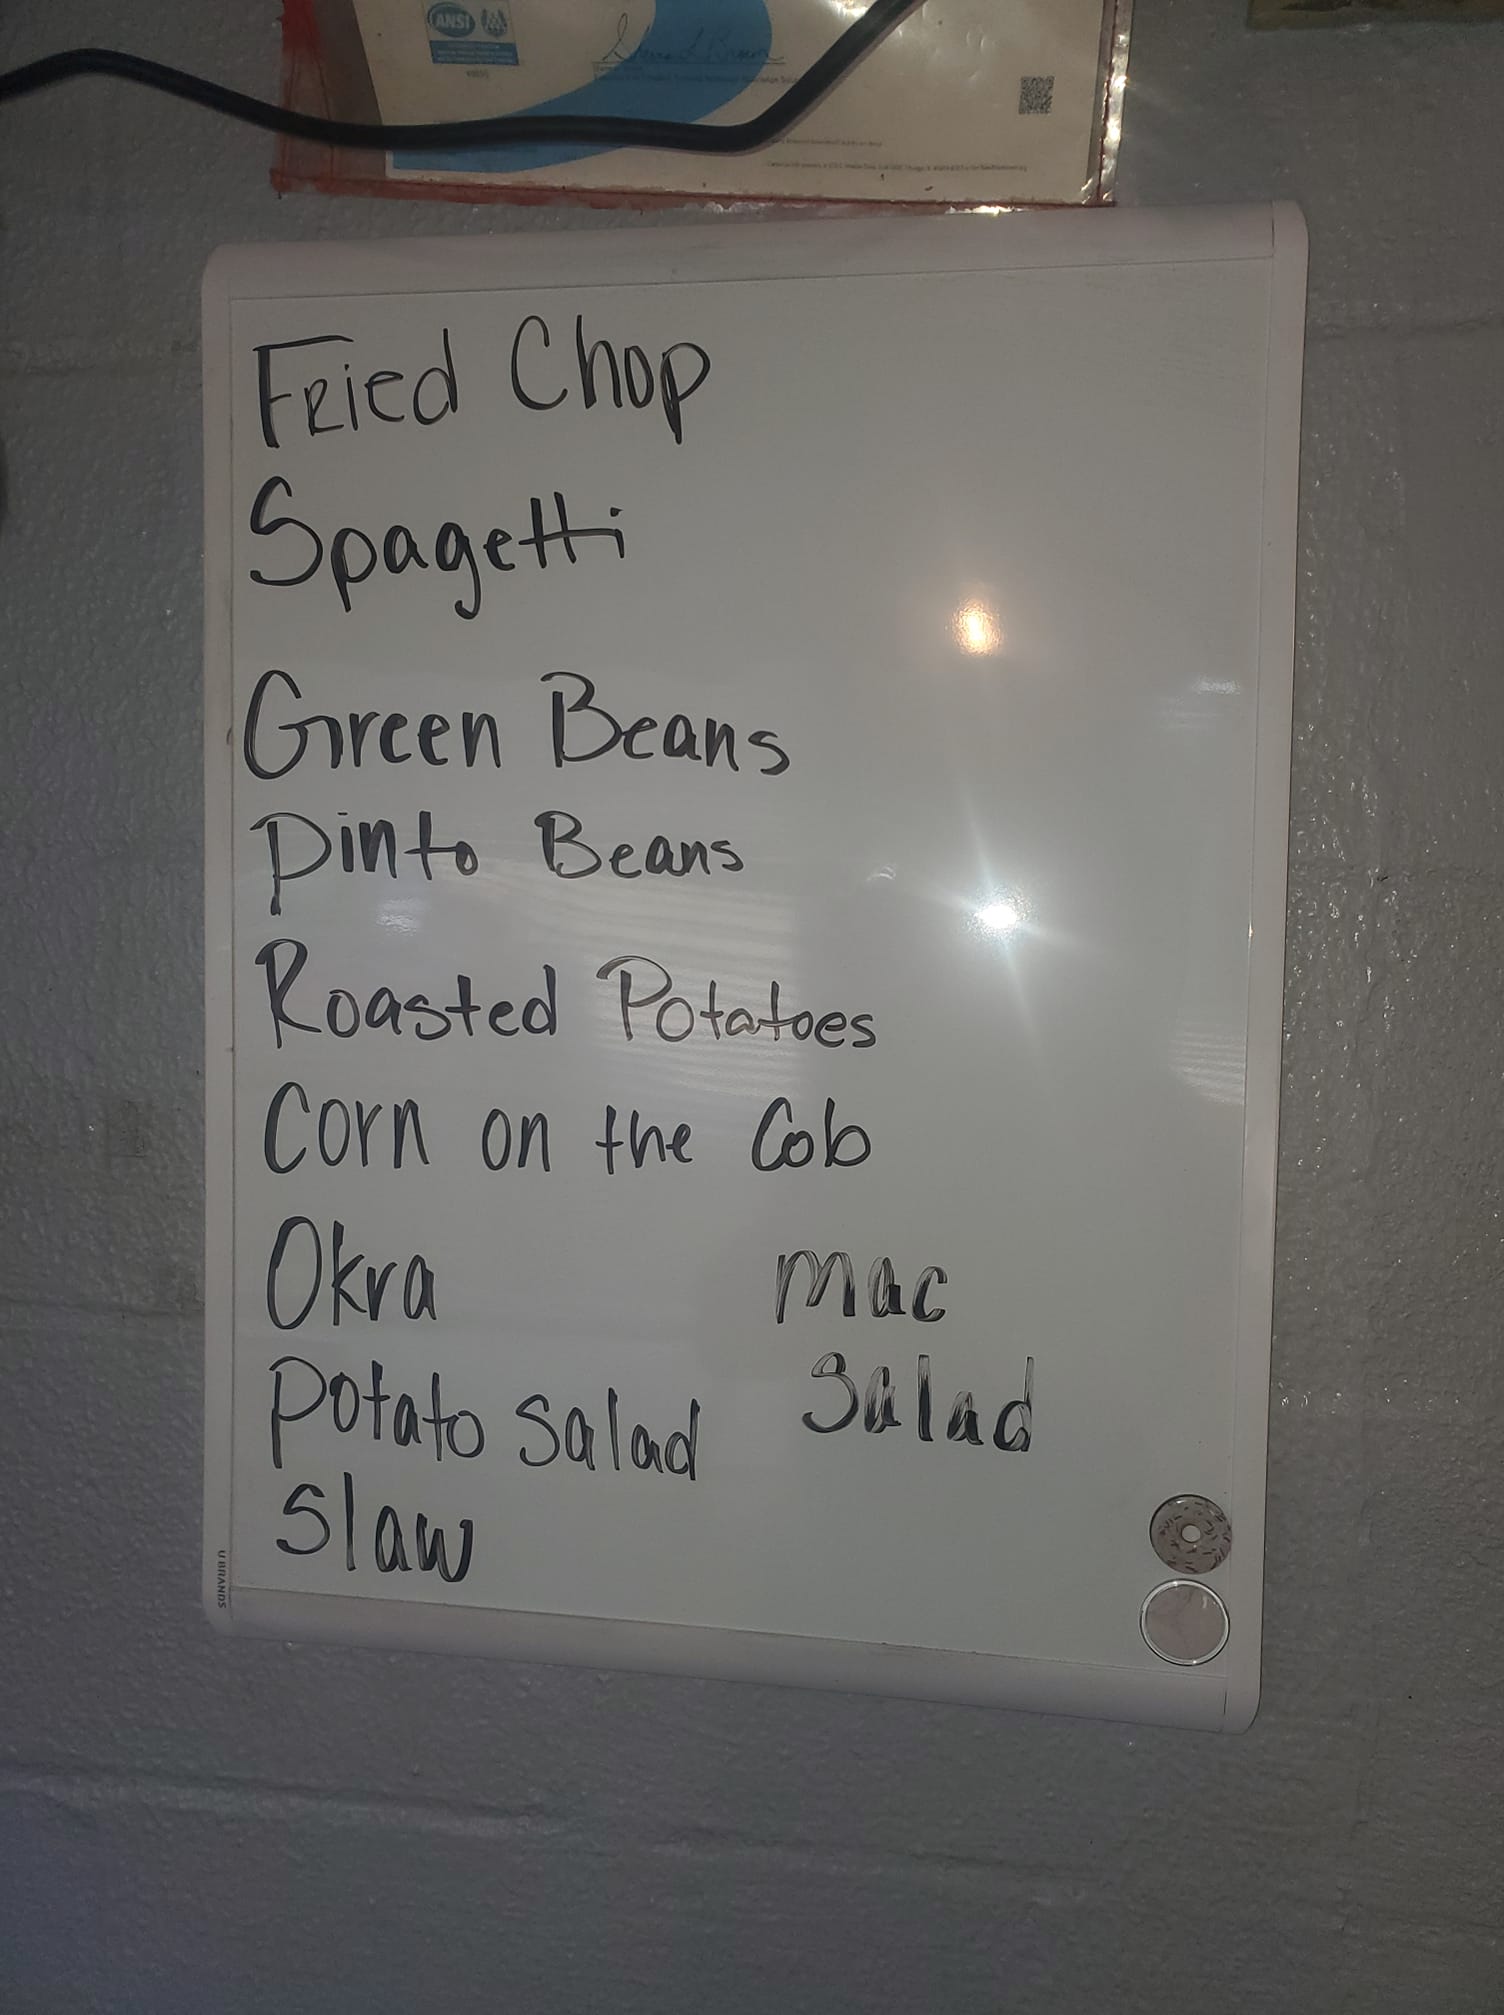 ANSI
Fried Chop
Spagetti
Green Beans
Pinto Beans
Roasted Potatoes
Corn on the Cob
Okra
mac
Potato Salad
Salad
Slaw
U BRANDS